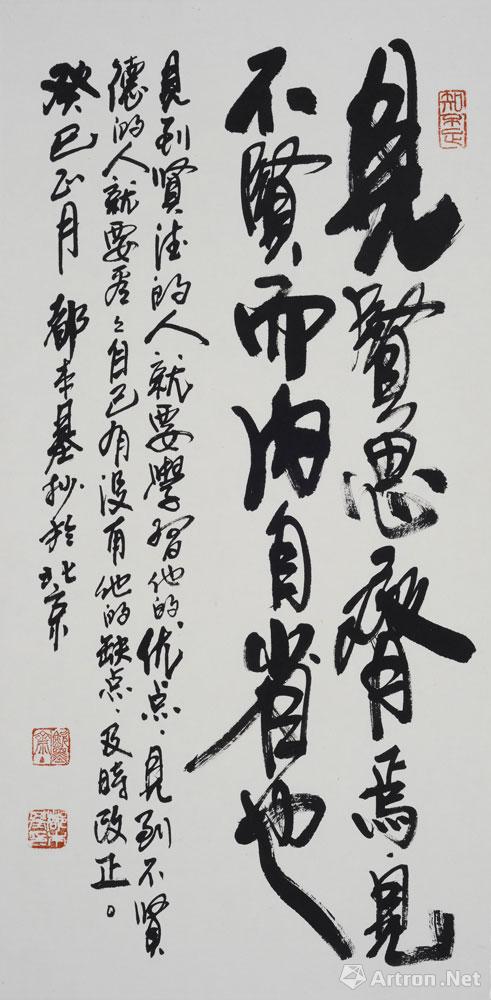 見賢思齊焉、見
不賢而内自省也
見到賢德的人就要學習他的优点、見到不賢
德的人就要看々自己有没有他的缺点、及時改正。
癸巳正月 都本基抄於北京
Artron.Net